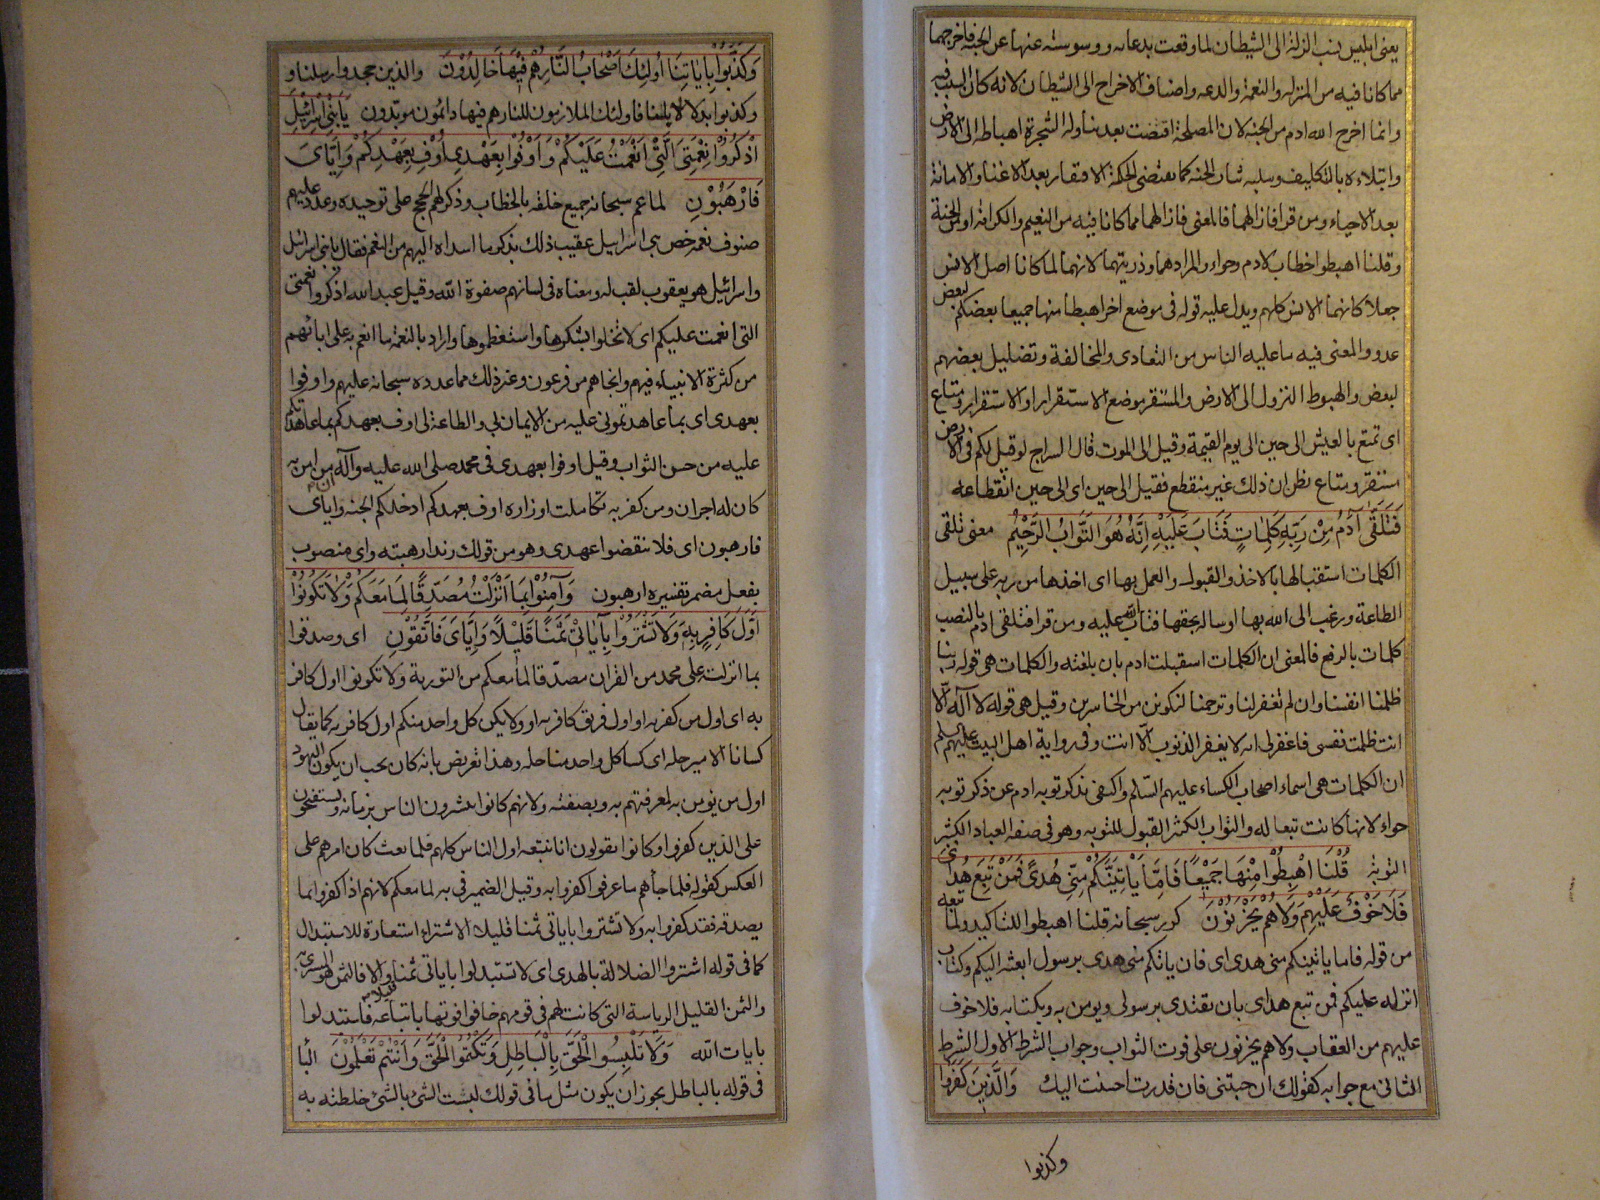 يعنى ابليس نسب الزلة الى الشيطان لما وقعت بدعائه ووسوسته عنها عن الجنة فاخرجهما
مما كانا فيه من المنزلة والنعمة والدعه واضاف الاخراج الى الشيطان لانه كان السبب فيه
وانما اخرج الله ادم من الجنة لان المصلحة اقتضت بعد تناوله الشجرة اهباطه الى الارض
وابتلاءه بالتكليف وسلبه ثياب الجنه كما يقتضى الحكمة الافقار بعد الاغناء والاماتة
بعد الاحياء ومن قرا فازالهما فالمعنى فازالهما مما كانا فيه من النعيم والكرامة او من الجنة
وقلنا اهبطوا خطاب لادم وحواء والمراد هما وذريتهما لانهما لما كانا اصل الانس
جعلا كانهما الانس كلهم ويدل عليه قوله فى موضع اخر اهبطا منها جميعا بعضكم لبعض
عدو والمعنى فيه ما عليه الناس من التعادى والمخالفة وتضليل بعضهم
لبعض والهبوط النزول الى الارض والمستقر موضع الاستقرار او الاستقرار ومتاع
اى تمتع بالعيش الى حين الى يوم القيمة وقيل الى الموت قال السراج لو قيل لكم فى الارض
مستقر ومتاع لظن ان ذلك غير منقطع فقيل الى حين اى الى حين انقطاعه
فَتَلَقّٰى آدَمُ مِنْ رَبِّهِ كَلِمَاتٍ فَتَابَ عَلَيْهِ اِنَّهُ هُوَ التَّوَّابُ الرَّحِيْمُ معنى تلقى
الكلمات استقبالها بالاخذ والقبول والعمل بها اى اخذها من ربه على سبيل
الطاعة ورغب الى الله بها او ساله بحقها فتاب الله عليه ومن قرا فتلقى ادم بالنصب
كلمات بالرفع فالمعنى ان الكلمات استقبلت ادم بان بلغته والكلمات هى قوله ربنا
ظلمنا انفسنا وان لم تغفر لنا وترحمنا لنكونن من الخاسرين وقيل هى قوله لا اله الا
انت ظلمت نفسى فاغفر لى انه لا يغفر الذنوب الا انت وفى رواية اهل البيت عليهم السلم
ان الكلمات هى اسماء اصحاب الكساء عليهم السلم واكتفى بذكر توبه ادم عن ذكر توبه
حواء لانها كانت تبعا له والتواب الكثير القبول للتوبه وهو فى صفة العباد الكثير
التوبة قُلْنَا اهْبِطُوْا مِنْهَا جَمِيْعًا فَاِمَّا يَاْتِيَنَّكُمْ مِنِّى هُدًى فَمَنْ تَبِعَ هُدَاىَ
فَلَا خَوْفٌ عَلَيْهِمْ وَلَا هُمْ يَحْزَنُوْنَ كرر سبحانه قلنا اهبطوا للتاكيد ولما تبعه
من قوله فاما ياتينكم منى هدى اى فان ياتكم منى هدى برسول ابعثه اليكم وكتاب
انزله عليكم فمن تبع هداى بان يقتدى برسولى ويومن به وبكتابه فلا خوف
عليهم من العقاب ولا هم يحزنون على فوت الثواب وجواب الشرط الاول الشرط
الثانى مع جوابه كقولك ان جئتنى فان قدرت احسنت اليك وَالَّذِيْنَ كَفَرُوْا
وكذبوا
وَكَذَّبُوْا بِاٰيَاتِنَا اُولٰئِكَ اَصْحَابُ النَّارِ هُمْ فِيْهَا خَالِدُوْنَ والذين جحدوا رسلنا و
وكذبوا بدلائلنا فاولئك الملازمون للنار هم فيها دائمون موبدون يَا بَنِى اِسْرَائِيْلَ
اذْكُرُوْا نِعْمَتِىَ الَّتِىْ اَنْعَمْتُ عَلَيْكُمْ وَاَوْفُوْا بِعَهْدِى اُوْفِ بِعَهْدِكُمْ وَاِيَّاىَ
فَارْهَبُوْنِ لما عم سبحانه جميع خلقه بالخطاب وذكر لهم الحجج على توحيده وعدد عليهم
صنوف نعمه خص بنى اسرائيل عقيب ذلك بذكر ما اسداه اليهم من النعم فقال يا بنى اسرائيل
واسرائيل هو يعقوب لقب له ومعناه فى لسانهم صفوة الله وقيل عبد الله اذكروا نعمتى
التى انعمت عليكم اى لا تخلوا بشكرها واستعظموها واراد بالنعمة ما انعم به على ابائهم
من كثرة الانبياء فيهم وانجاهم من فرعون وغير ذلك مما عدده سبحانه عليهم واوفوا
بعهدى اى بما عاهدتمونى عليه من الايمان بى والطاعة لى اوف بعهدكم بما عاهدتكم
عليه من حسن الثواب وقيل اوفوا بعهدى فى محمد صلى الله عليه وآله ان من امن به
كان له اجران ومن كفر به تكاملت اوزاره اوف بعهدكم ادخلكم الجنة واياى
فارهبون اى فلا تنقضوا عهدى وهو من قولك زيدا رهبته واى منصوب
بفعل مضمر تفسيره ارهبون وَآمِنُوْا بِمَا اَنْزَلْتُ مُصَدِّقًا لِمَا مَعَكُمْ وَلَا تَكُوْنُوْا
اَوَّلَ كَافِرٍ بِهِ وَلَا تَشْتَرُوْا بِآيَاتِىْ ثَمَنًا قَلِيْلًا وَاِيَّاىَ فَاتَّقُوْنِ اى وصدقوا
بما انزلت على محمد من القران مصدقا لما معكم من التورية ولا تكونوا اول كافر
به اى اول من كفر به او اول فريق كافر به او ولا يكن كل واحد منكم اول كافر به كما يقال
كسانا الامير حله اى كسا كل واحد منا حله وهذا تعريض بانه كان يجب ان يكون اليهود
اول من يومن به لمعرفتهم به وبصفته ولانهم كانوا يبشرون الناس بزمانه ويستفتحون
على الذين كفروا وكانوا يقولون انا نتبعه اول الناس كلهم فلما بعث كان امرهم على
العكس كقوله فلما جاءهم ما عرفوا كفروا به وقيل الضمير فى به لما معكم لانهم اذا كفروا بما
يصدقه فقد كفروا به ولا تشتروا باياتى ثمنا قليلا الاشتراء استعارة للاستبدال
كما فى قوله اشتروا الضلالة بالهدى اى لا تستبدلوا باياتى ثمنا قليلا والا فالثمن هو المشترى به
والثمن القليل الرياسة التى كانت لهم فى قومهم خافوا فوتها باتباعه فاستبدلوا
بايات الله وَلَا تَلْبِسُوا الْحَقَّ بِالْبَاطِلِ وَتَكْتُمُوا الْحَقَّ وَاَنْتُمْ تَعْلَمُوْنَ البا
فى قوله بالباطل يجوز ان يكون مثل ما فى قولك لبست الشئ بالشئ خلطته به